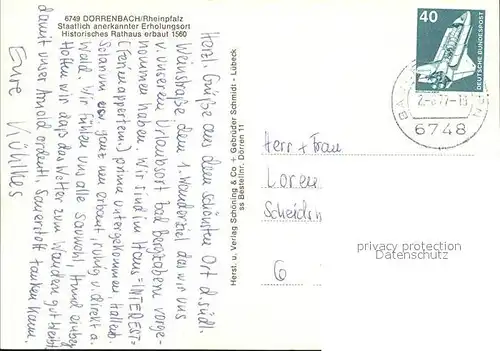 6749 DÖRRENBACH/Rheinpfalz
Staatlich anerkannter Erholungsort
Historisches Rathaus erbaut 1560
Herzl. Grüße aus dem schönsten Ort d. südl.
Weinstraße dem 1. Wanderziel das wir uns
v. unseren Urlaubsort Bad Bergzabern vorge-
nommen haben. Wir sind im Haus "INTEREST"
(Ferienappartem.) prima untergekommen, Hallenb.
Solarium usw. ganz neu erbaut, ruhig u. direkt a.
Wald. Wir fühlen uns alle sauwohl, Hund einbez.
Hoffen wir daß das Wetter zum Wandern gut bleibt
damit unser Arnold ordentl. Sauerstoff tanken kann.
Eure
Herst. u. Verlag Schöning & Co + Gebrüder Schmidt - Lübeck
ss Bestellnr. Dörren 11
40
DEUTSCHE BUNDESPOST
6748
Herr + Frau
Loren
Scheiden
6
privacy protection
Datenschutz